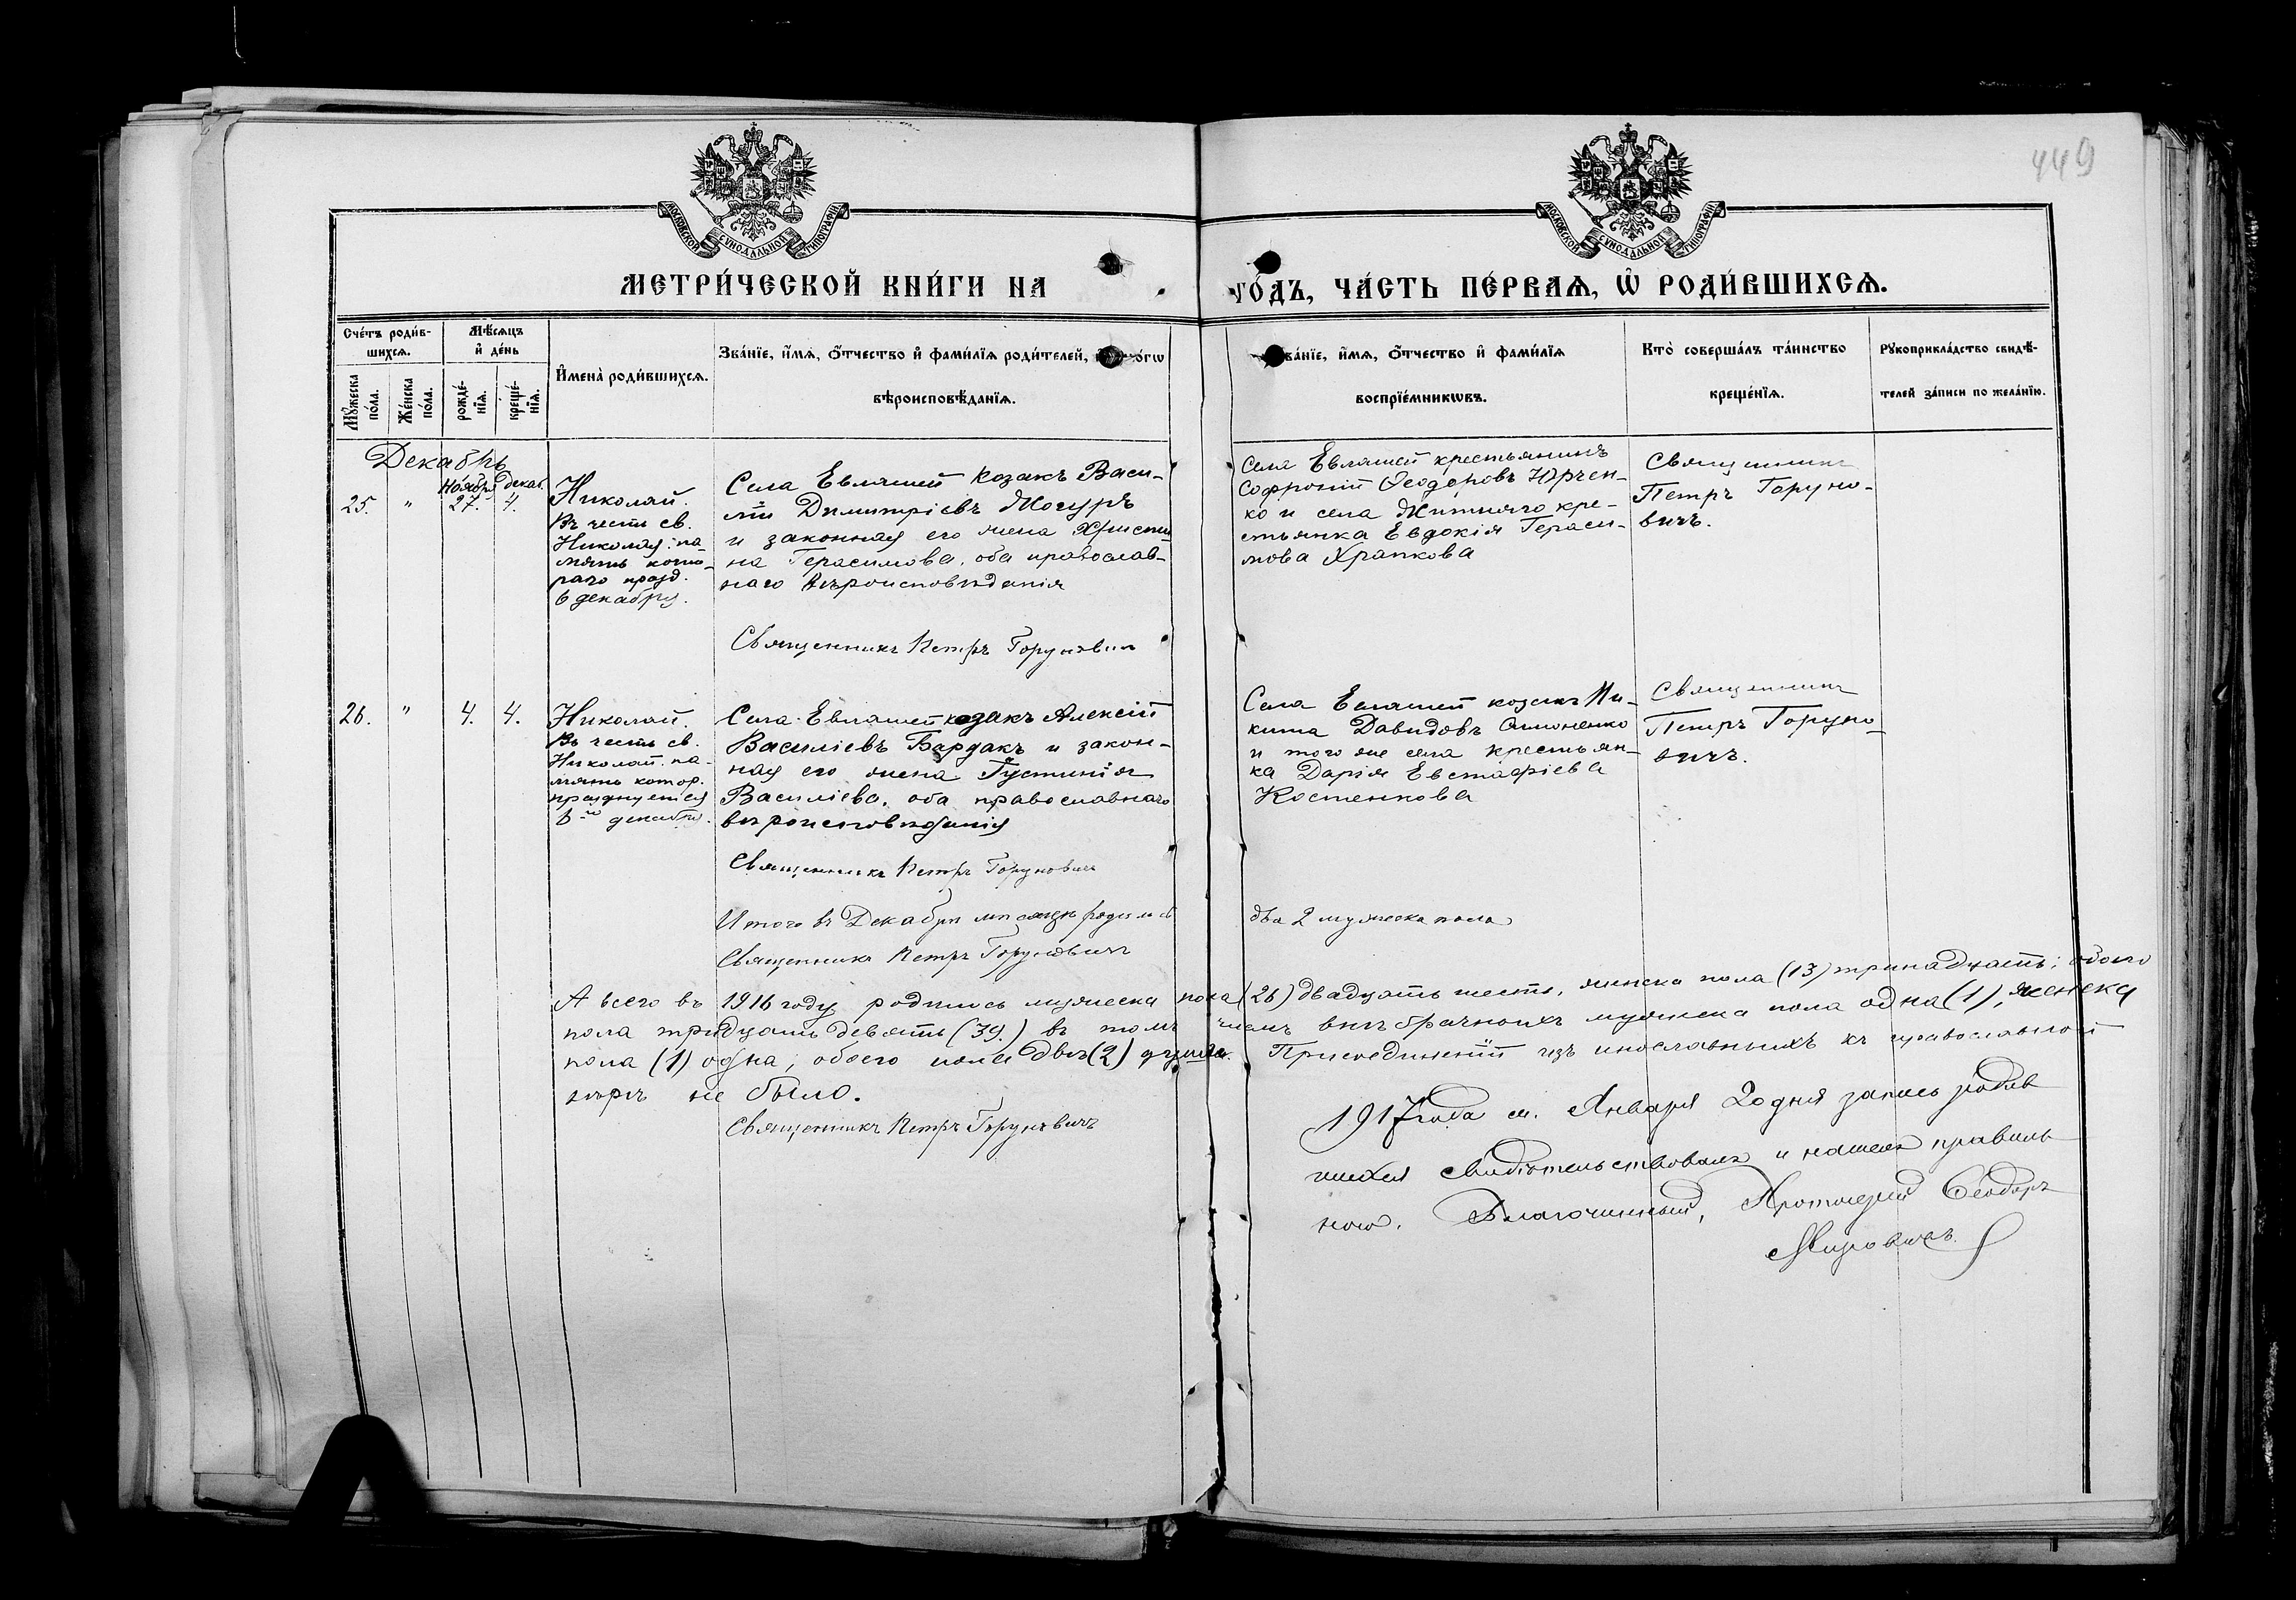 449
МОСКОВСКОЙ СУНОДАЛЬНОЙ ТИПОГРАФІИ
МОСКОВСКОЙ СУНОДАЛЬНОЙ ТИПОГРАФІИ
МЕТРИ́ЧЕСКОЙ КНИ́ГИ НА ГО́ДЪ, ЧА́СТЬ ПЕ́РВАѦ, Ѡ РОДИ́ВШИХСѦ.
Сче́тъ роди́в-
шихсѧ.
Мꙋ́жеска по́ла.
Же́нска по́ла.
Мѣ́сѧцъ
и҆ де́нь
рожде́-
нїѧ.
креще́-
нїѧ.
И҆мена̀ роди́вшихсѧ.
Зва́нїе, и҆́мѧ, ѻ҆́тчество и҆ фами́лїѧ роди́телей,
вѣроисповѣ́данїѧ.
Зва́нїе, и҆́мѧ, ѻ҆́тчество и҆ фами́лїѧ
воспрїе́мникѡвъ.
Кто̀ соверша́лъ та́инство
креще́нїѧ.
Рꙋкоприкла́дство свидѣ́-
телей за́писи по жела́нїю.
Декабрь
Ноября декаб.
25. " 27. 4.
Николай.
Въ честь св.
Николая. па-
мять кото-
раго празд.
6 декабря.
Села Евлашей козакъ Васи-
лій Димитріевъ Могуръ
и законная его жена Христи-
на Герасимова, оба православ-
наго вѣроисповѣданія
Священникъ Петръ Горуновичъ
Села Евлашей крестьянинъ
Софроній Ѳеодоровъ Юрчен-
ко и села Житняго кре-
стьянка Евдокія Гераси-
мова Храпкова
Священникъ
Петръ Горуно-
вичъ.
26. " 4. 4.
Николай.
Въ честь св.
Николай. па-
мять котор.
празднуется
6-го декабря.
Села Евлашей козакъ Алексій
Василіевъ Бардакъ и закон-
ная его жена Густинія
Василіева, оба православнаго
вѣроисповѣданія
Священникъ Петръ Горуновичъ
Села Евлашей козакъ Ни-
кита Давидовъ
и того же села крестьян-
ка Дарія Евстафіева
Костенкова
Священникъ
Петръ Горуно-
вичъ.
Итого въ Декабрѣ мѣсяцѣ родилось два 2 мужеска пола
Священникъ Петръ Горуновичъ
А всего въ 1916 году родилось мужеска пола (26) двадцать шесть, женска пола (13) тринадцать; обоего
пола тридцать девять (39.) въ томъ числѣ внѣбрачныхъ мужеска пола одна (1), женска
пола (1) одна, обоего пола двѣ (2) души. Присоединеній изъ инославныхъ къ православной
вѣрѣ не было.
Священникъ Петръ Горуновичъ
1917 года м. Января 20 дня запись родив
шихся свидѣтельствовалъ и нашелъ правиль
ною. Благочинный, Протоіерей Ѳеодоръ